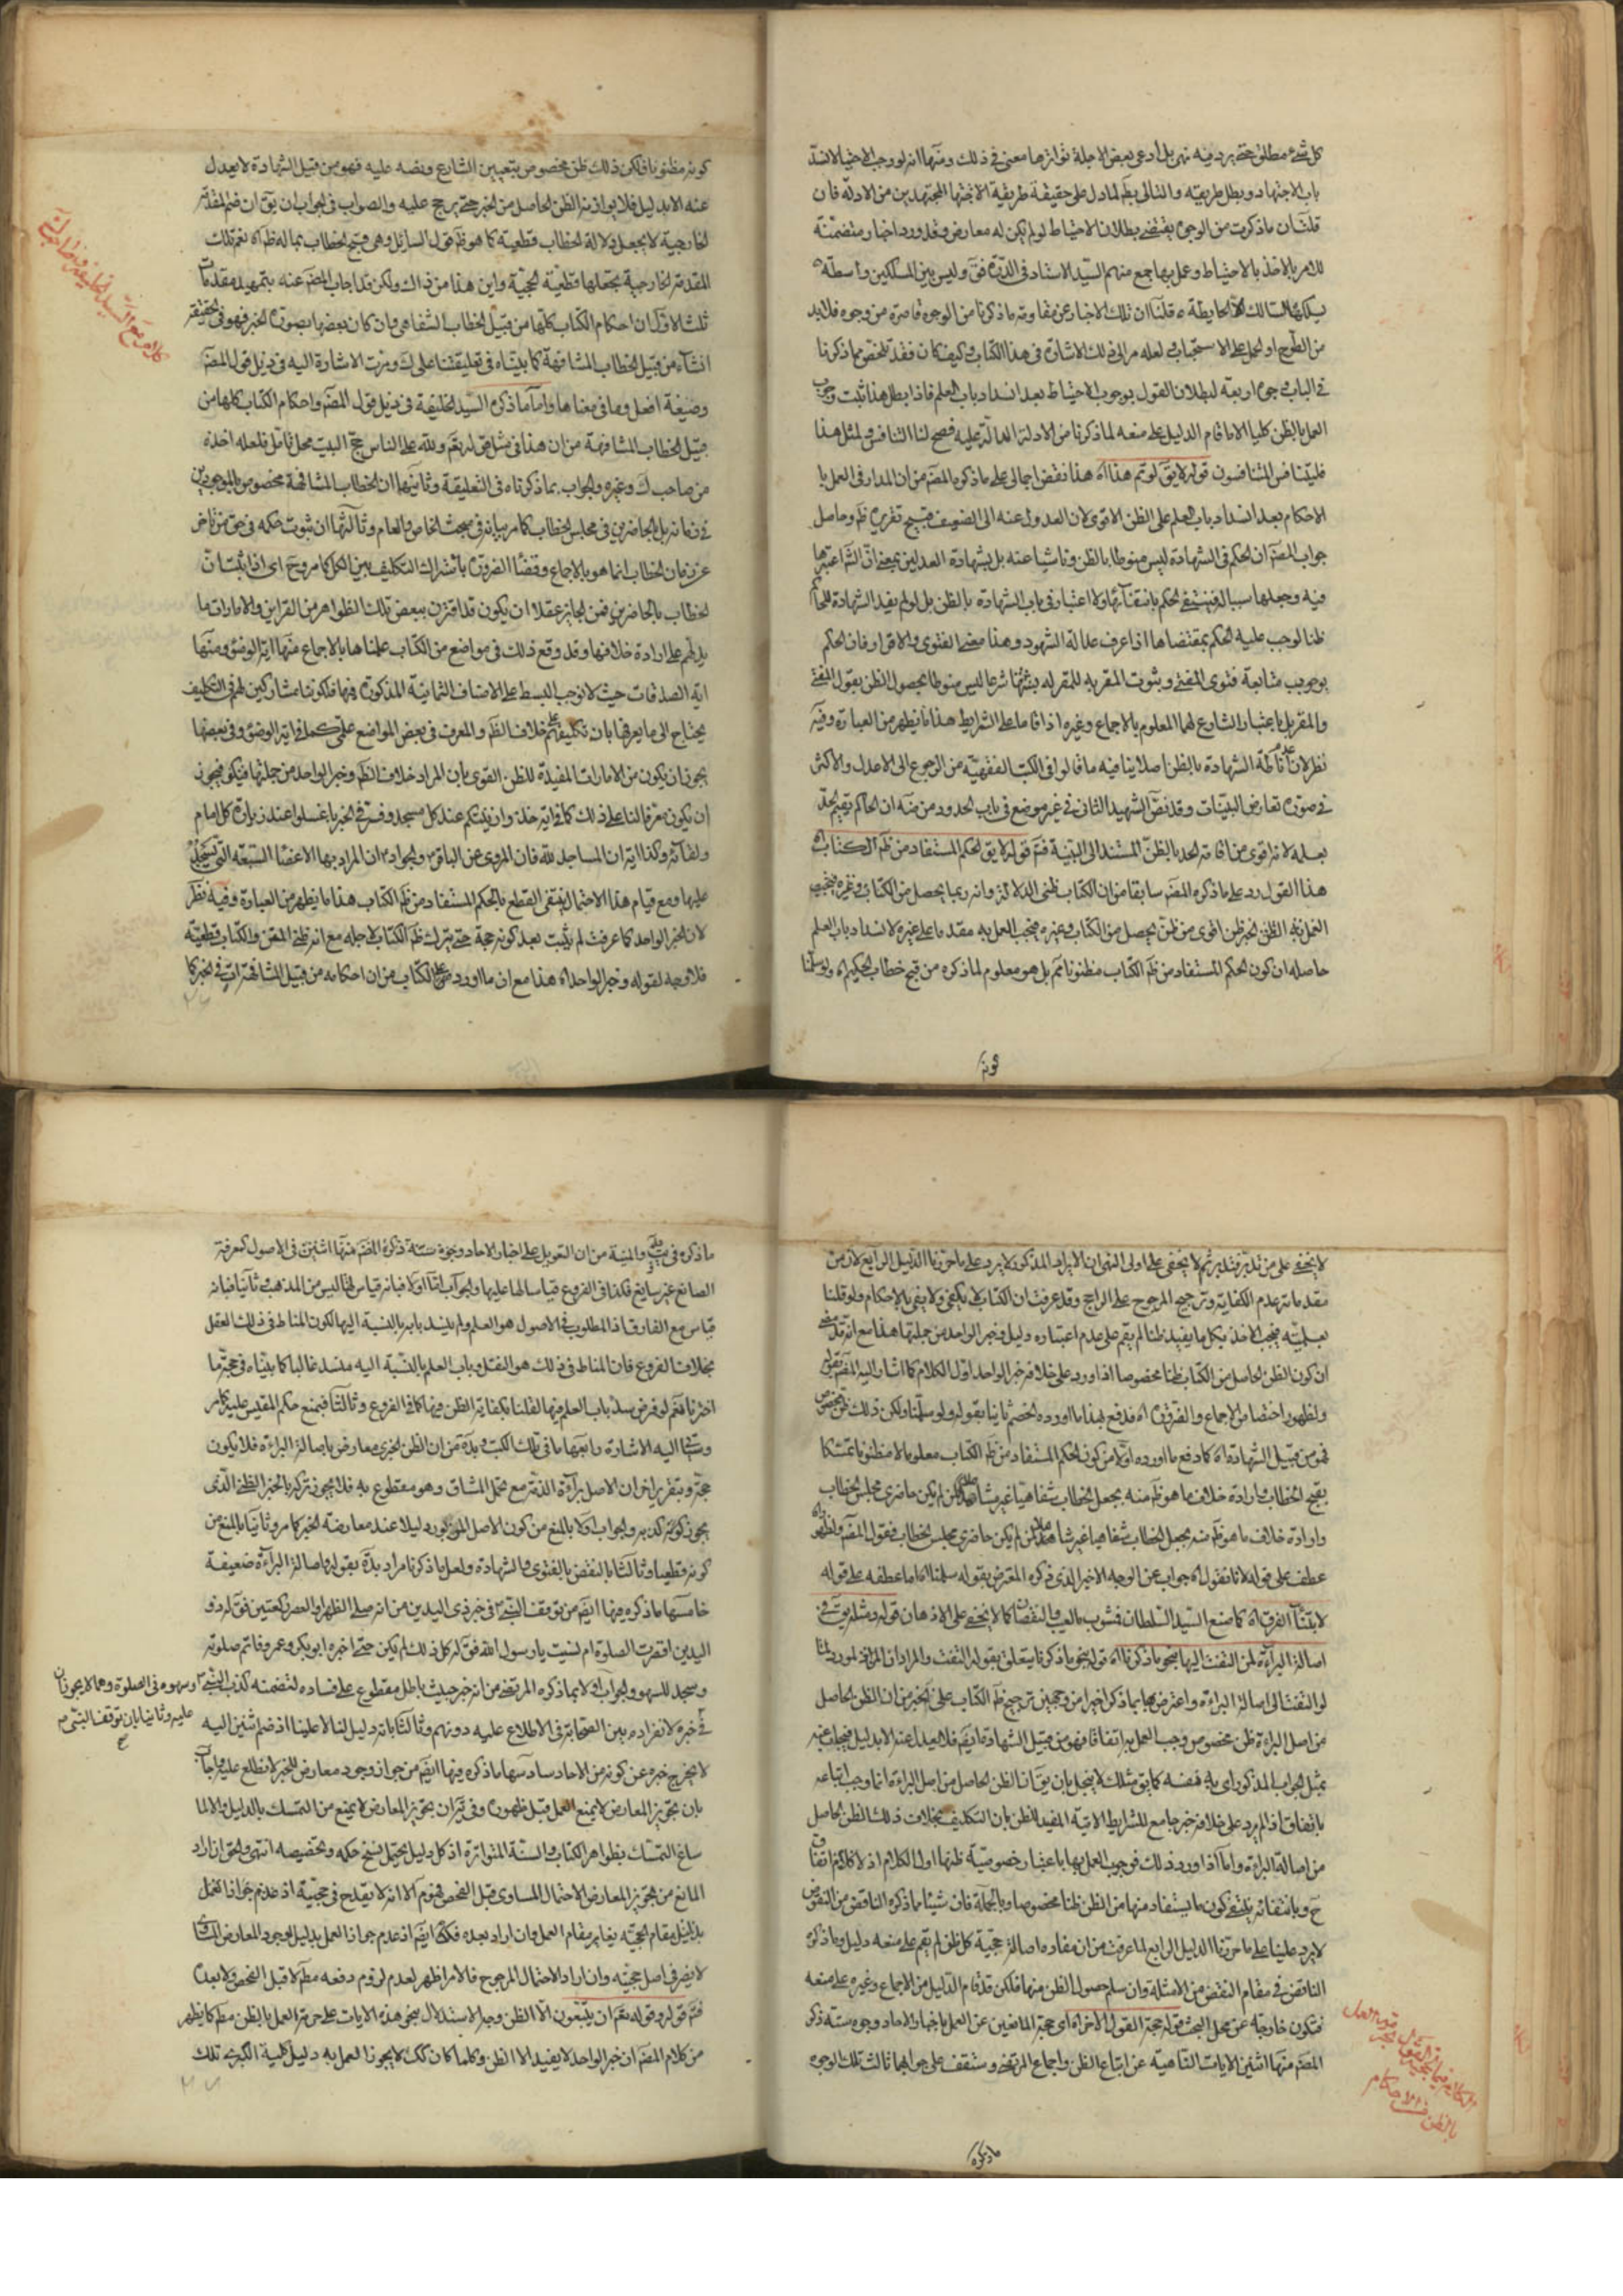 كل شيء مطلق حتى يرد فيه نهى بل ادعى بعض الاجلة تواترها معنى في ذلك ومنها انه لو وجب الاحتياط لانسد
باب الاجتهاد وبطل طريقته والتالي بط لما دل على حقيقة طريقة الاخذ المجتهدين من الادلة فان
قلت ان ما ذكرت من الوجوه يقتضى بطلان الاحتياط لو لم يكن له معارض وقد ورد اخبار متضمنة
للامر بالاخذ بالاحتياط وعمل بها جمع منهم السيد الاستاد في الدرة فق وليس بين المسلكين واسطة
قلنا ان تلك الاخبار عن مقاومة ما ذكرنا من الوجوه قاصرة من وجوه فلا بد
من الطرح او الحمل على الاستحباب ولعله مر الى ذلك الاشارة في هذا الكتاب وكيف كان فقد تلخص مما ذكرنا
في الباب وجوه اربعة لبطلان القول بوجوب الاحتياط بعد انسداد باب العلم فاذا بطل هذا ثبت وجوب
العمل بالظن كليا الا ما قام الدليل على منعه لما ذكرنا من الادلة الدالة عليه فصح لنا التنافس ولمثل هذا
فليتنافس المتنافسون قوله لا يق لو تم هذا اه هذا نقض اجمالى على ما ذكره المصم من ان المدار في العمل با
الاحكام بعد انسداد باب العلم على الظن الاقوى لان العدول عنه الى الضعيف قبيح تقريره ظم وحاصل
جواب المصم ان الحكم في الشهادة ليس منوطا بالظن وناشيا عنه بل بشهادة العدلين بمعنى ان الش اعتبرها
فيه وجعلها سببا له فينتفى الحكم بانتفائها ولا اعتبار في باب الشهادة بالظن بل لو لم يفيد الشهادة للحاكم
ظنا لوجب عليه الحكم بمقتضاها اذا عرف عدالة الشهود وهذا معنى الفتوى والاقرار فان الحكم
بوجوب متابعة فتوى المفتى وبثوت المقر به للمقر له شرعا ليس منوطا بحصول الظن بقول المفتى
والمقر بل باعتبار الشارع لهما المعلوم بالاجماع وغيره اذا قاما على الشرايط هذا ما يظهر من العبارة وفيه
نظر لان اناطة الشهادة بالظن اصلا ينافيه ما قالوا في الكتب الفقهية من الرجوع الى الاعدل والاكثر
في صورة تعارض البينات وقد نص الشهيد الثانى في غير موضع في باب الحدود من ضه ان الحاكم يقيم الحد
بعلمه لانه اقوى من اقامة الحد بالظن المستند الى البينة فتم قوله لا يق الحكم المستفاد من ظم الكتاب اه
هذا القول رد على ما ذكره المصم سابقا من ان الكتاب ظنى الدلالة وانه ربما يحصل من الكتاب وغيره فيجب
العمل به الظن الخبر ظن اقوى من ظن يحصل من الكتاب وغيره فيجب العمل به مقدما على غيره لانسداد باب العلم
حاصله ان كون الحكم المستفاد من ظم الكتاب مظنونا مم بل هو معلوم لما ذكره من قبح خطاب الحكيم اه ولو سلمنا
كونه
كونه مظنونا فلكن ذلك ظن مخصوص بتعيين الشارع ونصه عليه فهو من قبيل الشهادة لا يعدل
عنه الا بدليل فلا يوازنه الظن الحاصل من الخبر حتى يرجح عليه والصواب في الجواب ان يق ان ضم المقدمة
الخارجية لا يجعل دلالة الخطاب قطعية كما هو ظم قول السائل وهى قبح الخطاب بما له ظم اه نعم تلك
المقدمة الخارجية يجعلها قطعية الحجية واين هذا من ذاك ولكن قد اجاب المصم عنه بتمهيد مقدمات
ثلث الاولى ان احكام الكتاب كلها من قبيل الخطاب الشفاهى وان كان بعضها بصورة الخبر فهو في الحقيقة
انشاء من قبيل الخطاب المشافهة كما بيناه في تعليقتنا على ك ومرت الاشارة اليه في ذيل قول المصم
وصيغة افعل وما في معناها واما ما ذكره السيد الخليفة في ذيل قول المصم واحكام الكتاب كلها من
قبيل الخطاب المشافهة من ان هذا في مثل قوله تعم ولله على الناس حج البيت محل تامل فلعله اخذه
من صاحب ك وغيره والجواب بما ذكرناه في التعليقة وثانيها ان الخطاب المشافهة مخصوص بالموجودين
في زمانه بل الحاضرين في مجلس الخطاب كما مر بيانه في مبحث الخاص والعام وثالثها ان ثبوت حكمه في حق من تاخر
عن زمان الخطاب انما هو بالاجماع وقضاء الضرورة باشتراك التكليف بين الكل كما مر وح اى اذا ثبت ان
الخطاب بالحاضرين فمن الجايز عقلا ان يكون قد اقترن ببعض تلك الظواهر من القراين والامارات ما
يدلهم على ارادة خلافها وقد وقع ذلك في مواضع من الكتاب علمناها بالاجماع منها اية الوضوء ومنها
اية الصدقات حيث لا نوجب البسط على الاصناف الثمانية المذكورة فيها فلكوننا مشاركين لهم في التكليف
يحتاج الى ما يعرفنا بان تكليفهم خلاف الظم والمعرف في بعض المواضع علمى كما في اية الوضوء وفي بعضها
يجوز ان يكون من الامارات المفيدة للظن القوى بان المراد خلاف الظم وخبر الواحد من جملتها فيكون فيجوز
ان يكون معرفا لنا على ذلك كما في اية خذوا زينتكم عند كل مسجد وفسر في الخبر باغسلوا عند زيارة كل امام
ولقائه وكذا اية ان المساجد لله فان المروى عن الباقر والجواد ان المراد بها الاعضاء السبعة التي تسجد
عليها ومع قيام هذا الاحتمال ينتفى القطع بالحكم المستفاد من ظم الكتاب هذا ما يظهر من العبارة وفيه نظر
لان الخبر الواحد كما عرفت لم يثبت بعد كونه حجة حتى يترك ظم الكتاب لاجله مع انه ظنى المتن والكتاب قطعيته
فلا وجه لقوله وخبر الواحد اه هذا مع ان ما اورده على الكتاب من ان احكامه من قبيل المشافهة ات في الخبر كما
لا يخفى على من تدبر فتدبر ثم لا يخفى على اولى النهى ان الايراد المذكور لا يرد على ما حررنا الدليل الرابع لان من
مقدماته عدم الكفاية وترجيح المرجوح على الراجح وقد عرفت ان الكتاب لا يكفى ولا يفى بالاحكام ولو قلنا
بعلميته فيجب الاخذ بكل ما يفيد ظنا لم يقم على عدم اعتباره دليل وخبر الواحد من جملتها هذا مع انه قد
ان كون الظن الحاصل من الكتاب ظنا مخصوصا اذا ورد على خلافه خبر الواحد اول الكلام كما اشار اليه المصم بقوله
ولظهور اختصاص الاجماع والضرورة اه فدفع بهذا ما اورده الخصم ثانيا بقوله ولو سلمنا ولكن ذلك ظن مخصوص
فهو من قبيل الشهادة اه كما دفع ما اورده اولا من كون الحكم المستفاد من ظم الكتاب معلوما لا مظنونا تمسكا
بقبح الخطاب وارادة خلاف ما هو ظم منه بجعل الخطاب شفاهيا غير شامل لمن لم يكن حاضرى مجلس الخطاب
وارادة خلاف ما هو ظم منه بجعل الخطاب شفاهيا غير شامل لمن لم يكن حاضرى مجلس الخطاب فقول المصم ولظهور
عطف على قوله لانا نقول اه جواب عن الوجه الاخير الذى ذكره المعترض بقوله سلمنا اه اما عطفه على قوله
لابتناء الفرق اه كما صنع السيد السلطان فمشوب بالعيب والنقصان كما لا يخفى على الاذهان قوله ومثله يق في
اصالة البراءة لمن التفت اليها بنحو ما ذكرنا اه قوله بنحو ما ذكرنا يتعلق بقوله التفت والمراد ان المراد لمورد لنا
لو التفت الى اصالة البراءة واعترض بها بما ذكر اخيرا من وجهين ترجيح ظم الكتاب على الخبر من ان الظن الحاصل
من اصل البراءة ظن مخصوص وجب العمل به اتفاقا فهو من قبيل الشهادة ايضم فلا يعدل عنه الا بدليل فيجاب عنه
بمثل الجواب المذكور اى بان يق ان الظن الحاصل من اصل البراءة انما وجب اتباعه
باتفاق اذا لم يرد على خلافه خبر جامع للشرايط الاتية المفيد للظن بان التكليف بخلاف ذلك الظن الحاصل
من اصالة البراءة واما اذا ورد ذلك فوجوب العمل بها باعتبار خصوصية ظنها اول الكلام اذ لا كلام اتفاق
ح وبانتفائه ينتفى كون ما يستفاد منها من الظن ظنا مخصوصا وبالجملة فان شيئا مما ذكره الناقض من النقوض
لا يرد علينا على ما حررنا الدليل الرابع لما عرفت من ان مفاده اصالة حجية كل ظن لم يقم على منعه دليل وما ذكره
الناقض في مقام النقض من الامثلة وان سلم حصول الظن منها فلكن قد قام الدليل من الاجماع وغيره على منعه
فتكون خارجة عن محل البحث قوله حجة القول الاخر اه اى حجة المانعين عن العمل باخبار الاحاد وجوه ستة ذكر
المصم منها اثنين الايات الناهية عن اتباع الظن واجماع المرتضى وستقف على جوابهما ثالث تلك الوجوه
ما ذكره
ما ذكره في والمنية من ان التعويل على اخبار الاحاد وجوه ستة ذكر المصم منها اثنين في الاصول كمعرفة
الصانع غير سايغ فكذا في الفروع قياسا لها عليها والجواب اما اولا فبانه قياس لنا ليس من المذهب وثانيا فبانه
قياس مع الفارق اذ المطلوب في الاصول هو العلم ولم ينسد بابه بالنسبة اليها لكون المناط في ذلك العقل
بخلاف الفروع فان المناط في ذلك هو النقل وباب العلم بالنسبة اليه منسد غالبا كما بيناه في حجة ما
اخترنا فثم لو فرض سد باب العلم فيها لقلنا بكفاية الظن فيها كما في الفروع وثالثا فبمنع حكم المقيس عليه كما مر
اليه الاشارة رابعها ما في تلك الكتب من ان الظن الخبرى معارض باصالة البراءة فلا يكون
حجة وبتقرير اخر ان الاصل براءة الذمة مع تحمل المشاق وهو مقطوع به فلا يجوز تركه بالخبر الظنى الذى
يجوز كونه كذبه والجواب اولا بالمنع من كون الاصل المزبور دليلا عند معارضة الخبر كما مر وثانيا بالمنع من
كونه قطعيا وثالثا بالنقض بالفتوى والشهادة ولعل ما ذكرنا مراد بقوله واصالة البراءة ضعيفة
خامسها ما ذكره فيها ايضم من توقف النبي في خبر ذى اليدين من انه صلى الظهر او العصر ركعتين فق له ذو
اليدين اقصرت الصلوة ام نسيت يا رسول الله فق له كل ذلك لم يكن حتى اخبره ابو بكر وعمر وقاتم صلوته
وسجد للسهو والجواب اولا بما ذكره المرتضى من انه خبر خبيث باطل مقطوع على فساده لتضمنه كذب النبي او سهوه في الصلوة وهما لا يجوزان
عليه وثانيا بان توقف النبي
في خبره لانفراده من بين الصحابة في الاطلاع عليه دونهم وثالثا بانه دليل لنا لا علينا اذ ضم اثنين اليه
لا يخرج خبره عن كونه من الاحاد سادسها ما ذكره فيها ايضم من جواز وجود معارض للخبر لا نطلع عليه واجاب
بان تجويز المعارض لا يمنع العمل قبل ظهوره وفي ان تجويز المعارض لا يمنع من التمسك بالدليل والا لما
ساغ التمسك بظواهر الكتاب والسنة المتواترة اذ كل دليل يحتمل نسخ حكمه وتخصيصه انتهى والحق ان اراد
المانع من تجويز المعارض الاحتمال المساوى قبل الفحص فهو مم الا انه لا يقدح في حجيته اذ عدم جواز العمل
بدليل مقام الحجية يغاير مقام العمل وان اراد بعده فكك ايضم اذ عدم جواز العمل بدليل لوجود المعارض
لا يضر في اصل حجيته وان اراد الاحتمال المرجوح فالامر اظهر لعدم لزوم دفعه مطم لا قبل الفحص ولا بعده
فتم قوله وقوله تعم ان يتبعون الا الظن وجه الاستدلال بنحو هذه الايات على حرمة العمل بالظن مطم كما يظهر
من كلام المصم ان خبر الواحد لا يفيد الا الظن وكلما كان كك لا يجوز العمل به دليل كلية الكبرى تلك